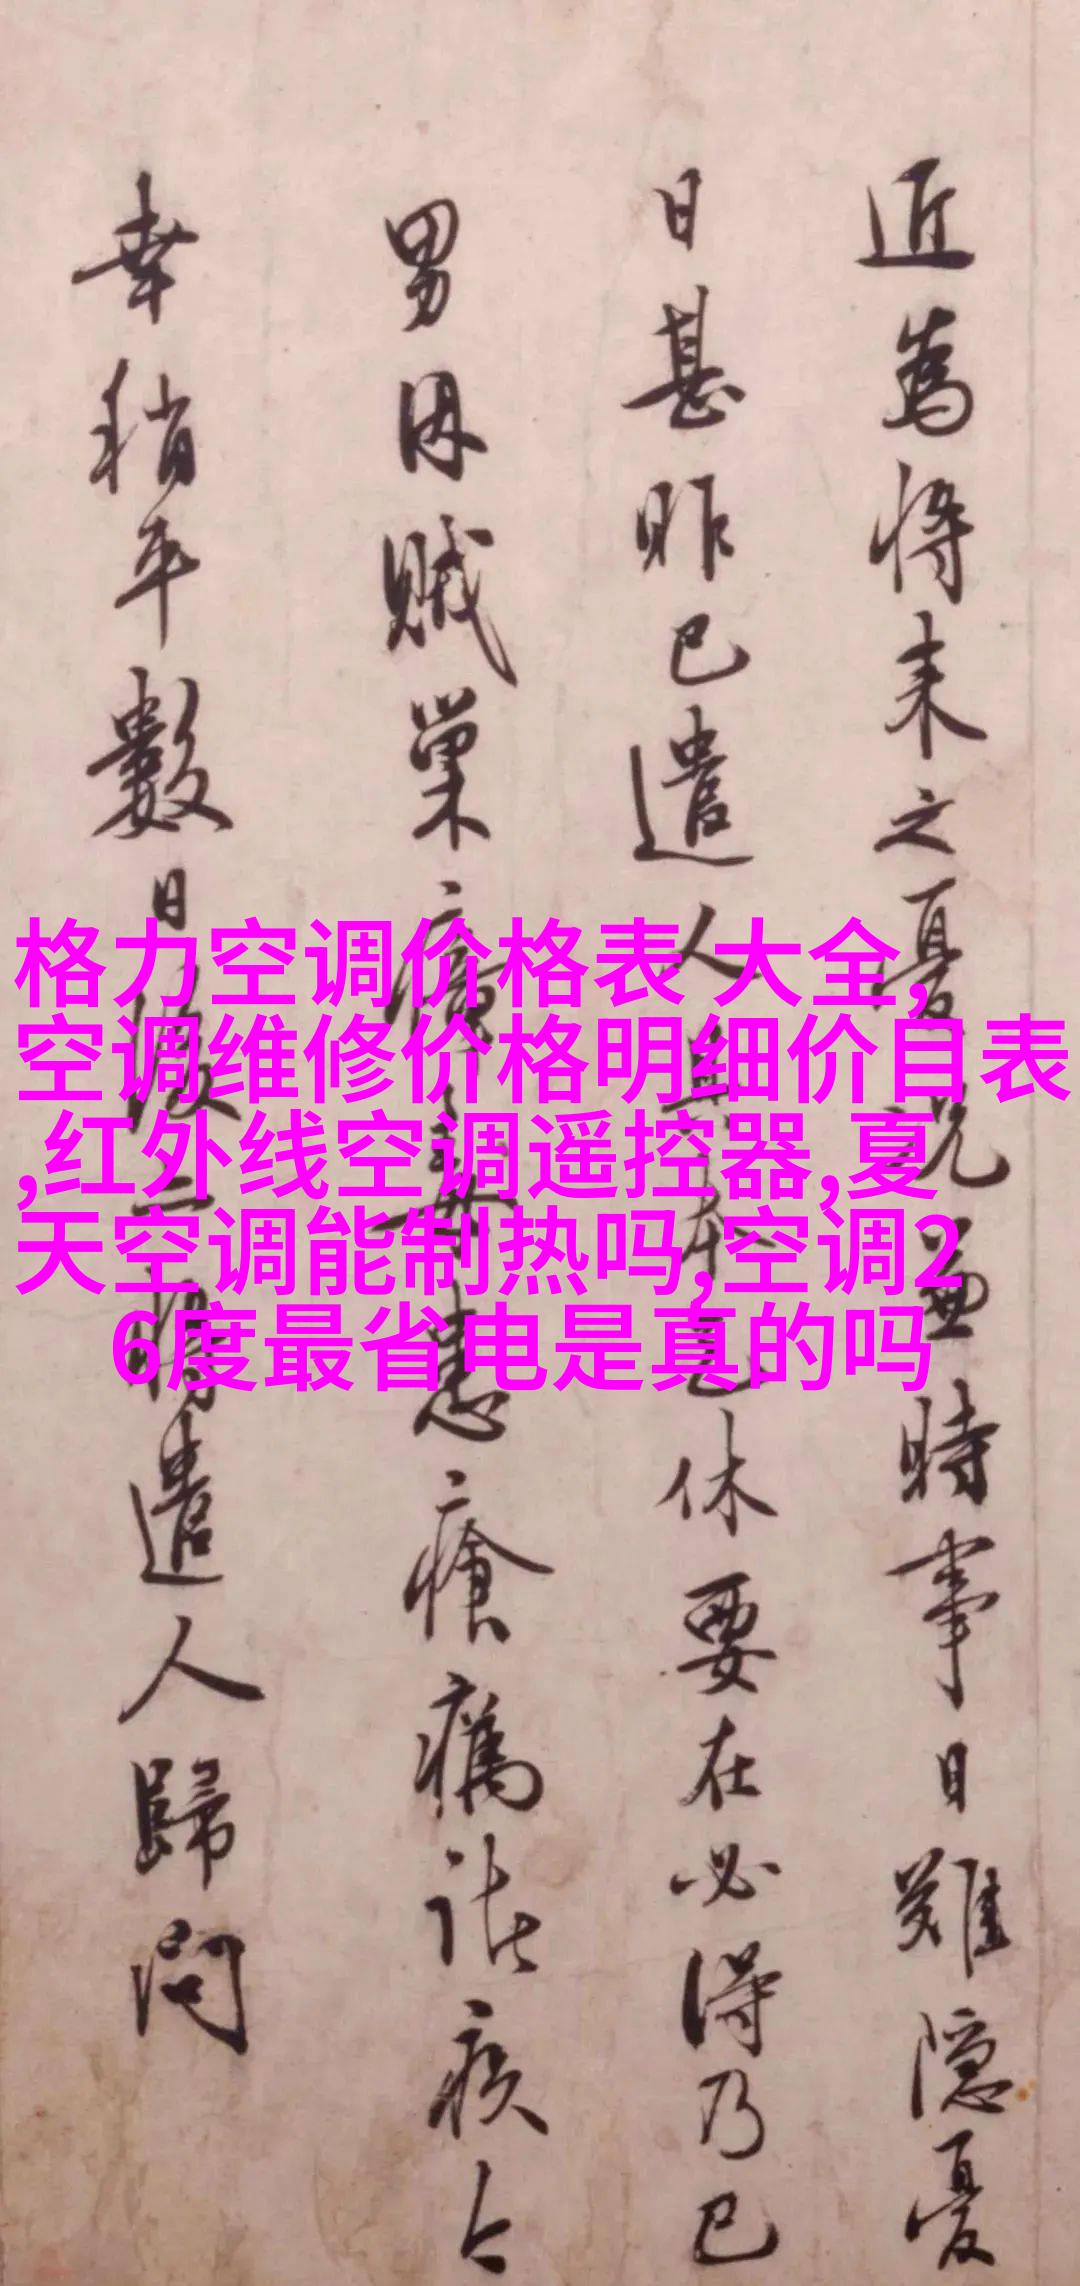 近為將来之憂況兼時事日難隱憂
日甚昨已遣人休要在必得乃已
男因賊巢瘴毒患瘡癘諸疾今
幸稍平數日後亦將遣人歸問
格力空调价格表 大全,
空调维修价格明细价目表
,红外线空调遥控器,夏
天空调能制热吗,空调2
6度最省电是真的吗